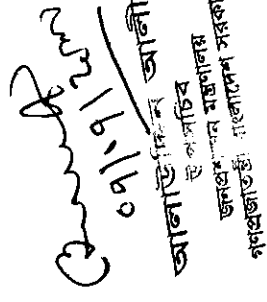 ০৭।০৭।১৬
আলাউদ্দিন আলী
উপসচিব
জনপ্রশাসন মন্ত্রণালয়
গণপ্রজাতন্ত্রী বাংলাদেশ সরকা